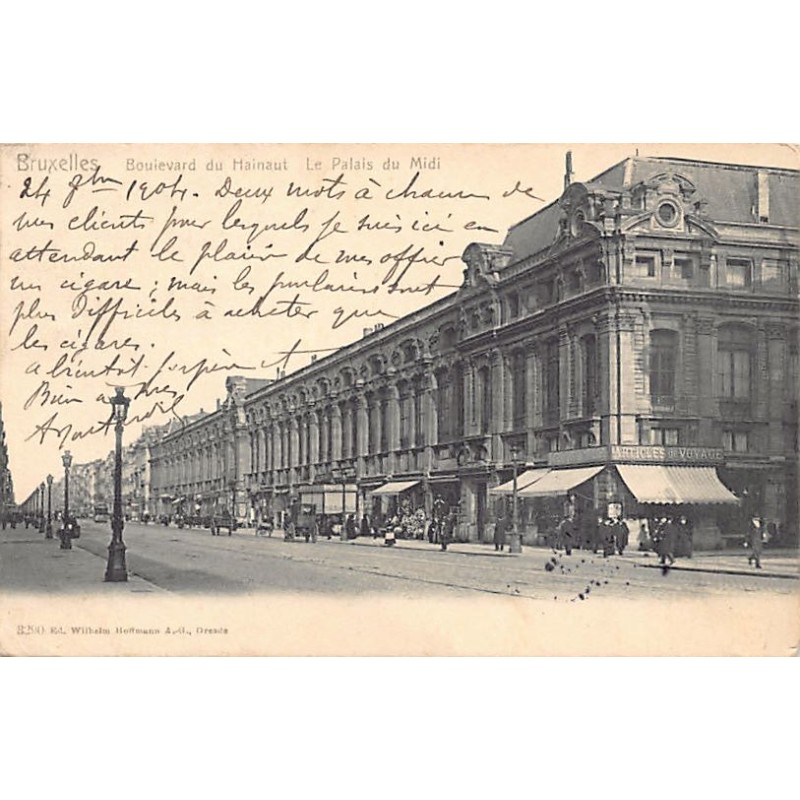 Bruxelles Boulevard du Hainaut Le Palais du Midi
24 1904. Deux mots à chacun de
mes clients pour lesquels je suis ici en
attendant le plaisir de mes offrir
un cigare ; mais les sont
plus difficiles à acheter que
les cigares.
à bientôt
Bien à
ARTICLES DE VOYAGE
3290 Ed. Wilhelm Hoffmann A.-G., Dresde